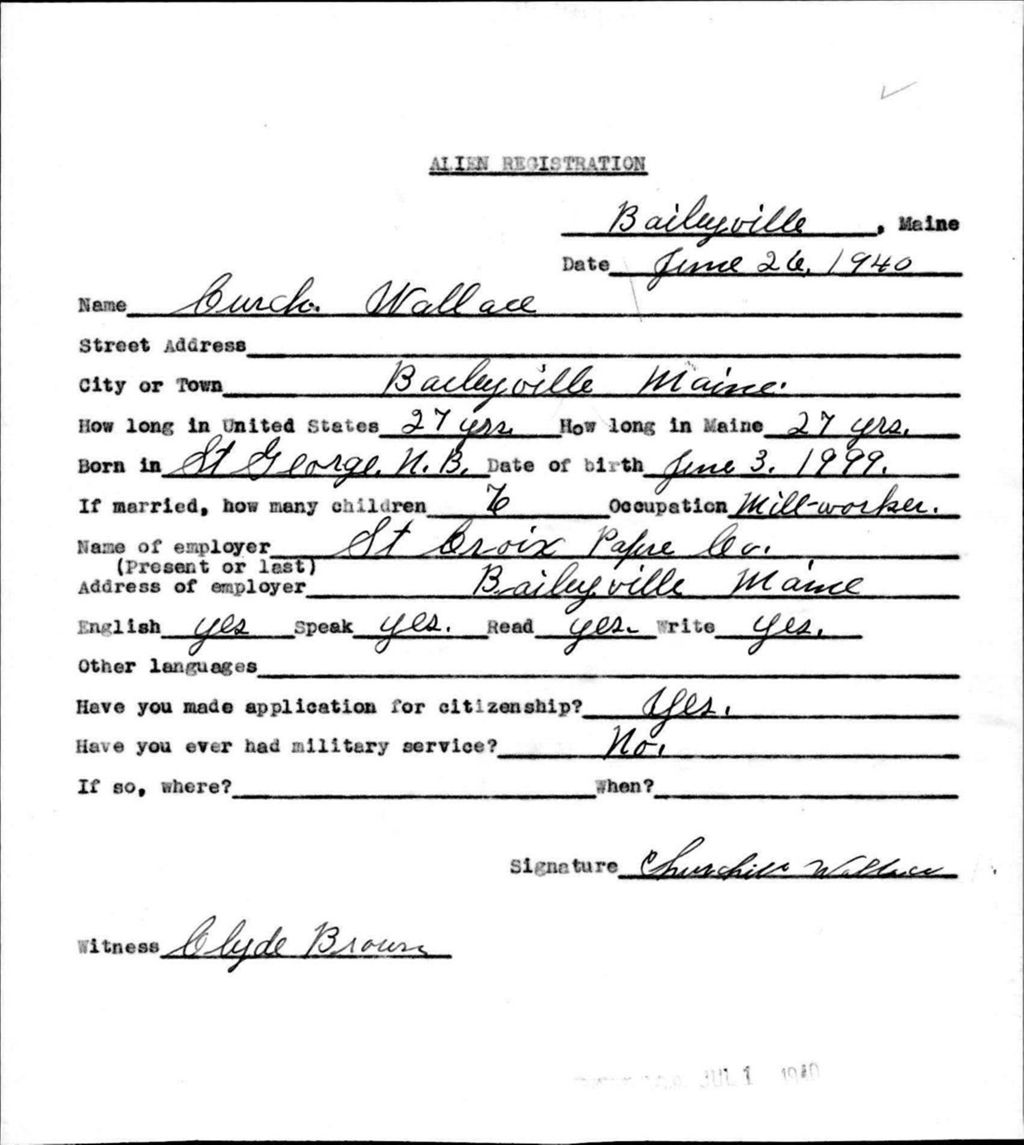 ALIEN REGISTRATION
Baileyville, Maine
Date June 26, 1940
Name Curch. Wallace
Street Address
City or Town Baileyville Maine.
How long in United States 27 yrs. How long in Maine 27 yrs.
Born in St George, N. B. Date of birth June 3. 1999.
If married, how many children 6 Occupation Mill-worker.
Name of employer St Croix Papre Co.
(Present or last)
Address of employer Baileyville Maine
English yes Speak yes. Read yes. Write yes.
Other languages
Have you made application for citizenship? Yes.
Have you ever had military service? No.
If so, where? When?
Signature Churchill Wallace
Witness Clyde Brown
JUL 1 1940